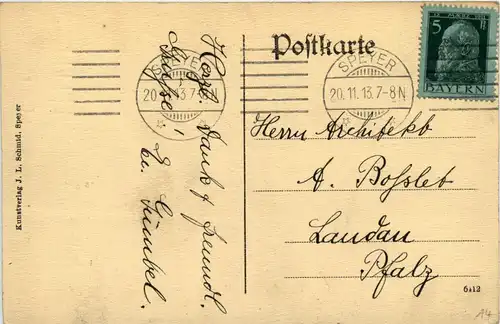 Postkarte
SPEYER
20.11.13.7-8N
SPEYER
20.11.13.7-8N
5 Pf
BAYERN
Herrn Architekt
A. Bosslet
Landau
Pfalz
Herzl. Dank f freundl.
Grüsse!
E. Gümbel.
Kunstverlag J. L. Schmid, Speyer
6412
A4